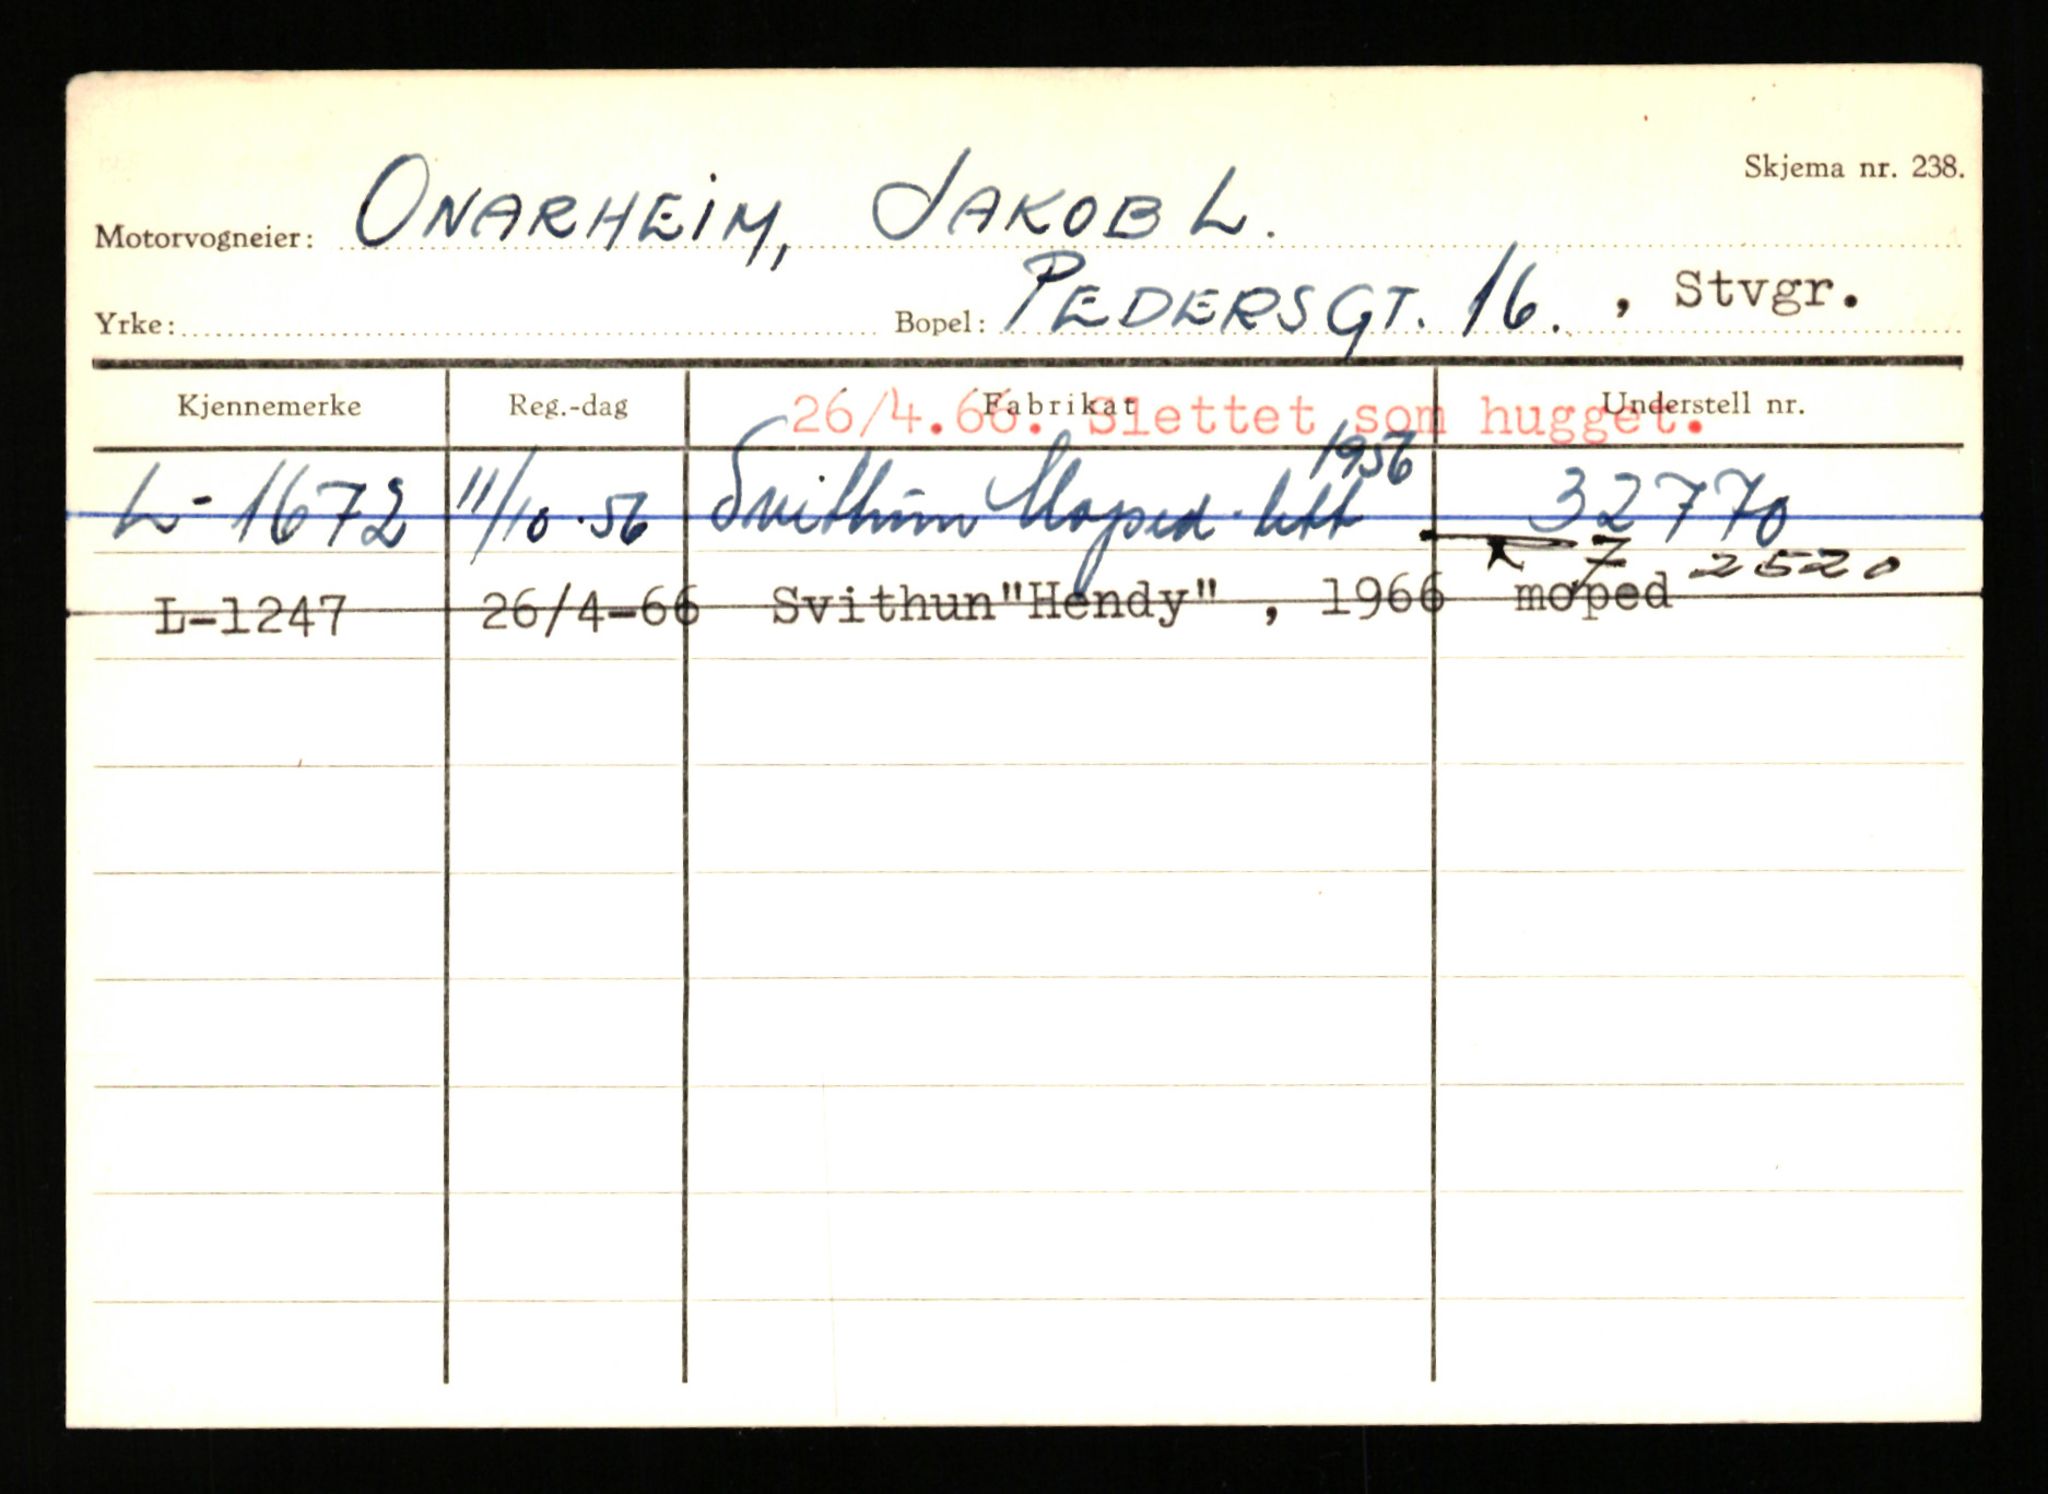 Skjema nr. 238.
Motorvogneier: ONARHEIM, JAKOB L.
Yrke: Bopel: PEDERSGT. 16. , Stvgr.
Kjennemerke Reg.-dag Fabrikat Understell nr.
26/4.66. Slettet som hugget.
L-1672 11/10.56 Svithun Moped. lett 1956 32770
2520
L-1247 26/4-66 Svithun "Hendy" , 1966 moped